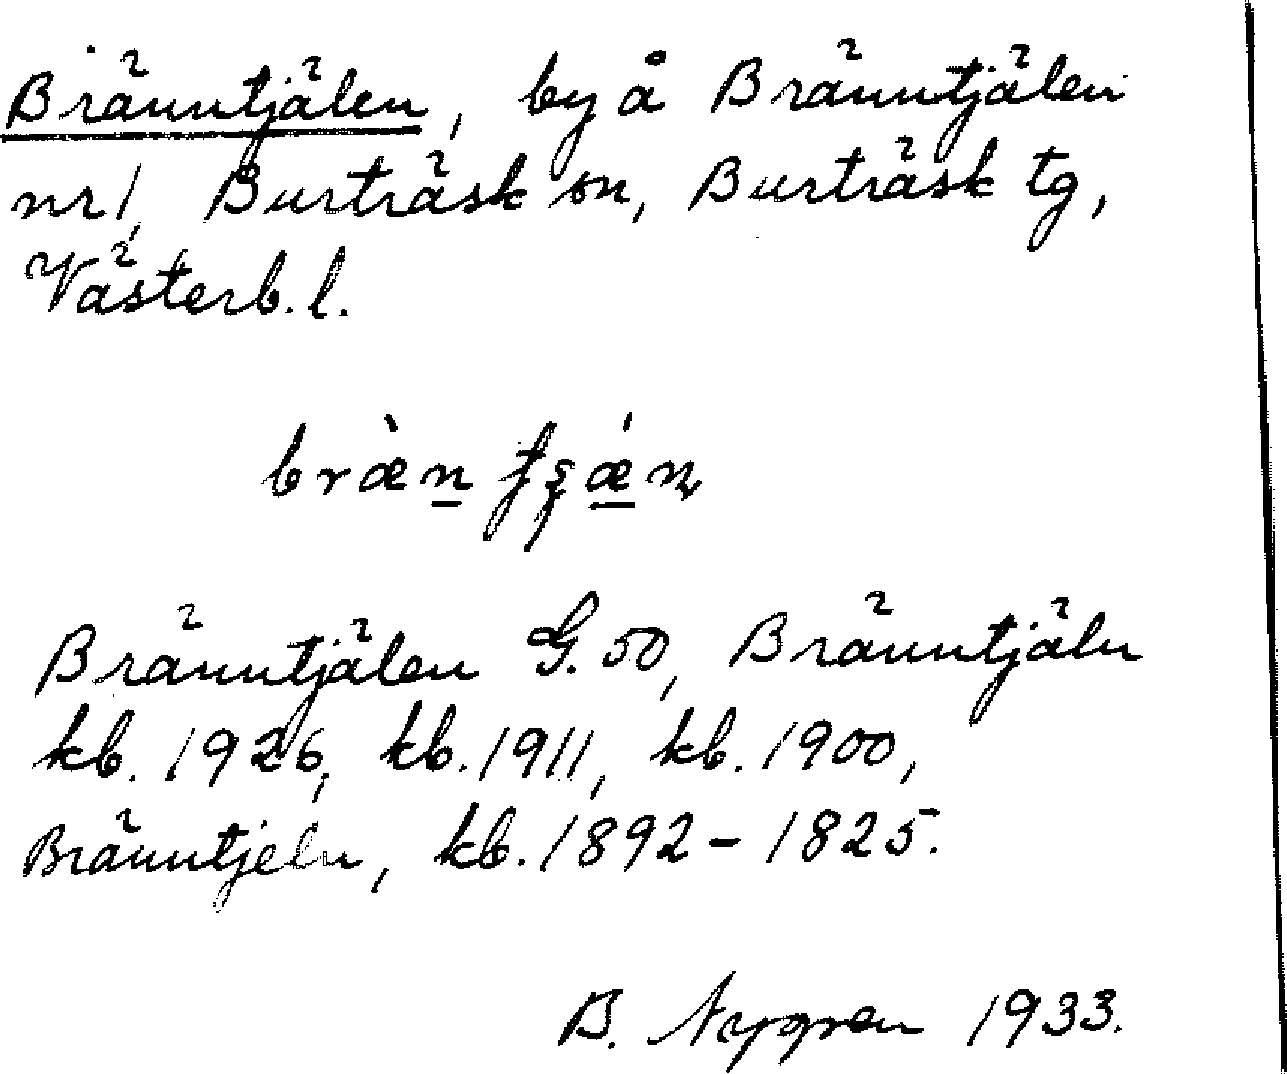 Bränntjälen, by å Bränntjälen
nr 1, Burträsk sn, Burträsk tg,
Västerb. l.
Bränntjälen G. 50, Bränntjäln
kb. 1926, kb. 1911, kb. 1900,
Bränntjeln, kb. 1892 - 1825.
B. Nygren 1933.